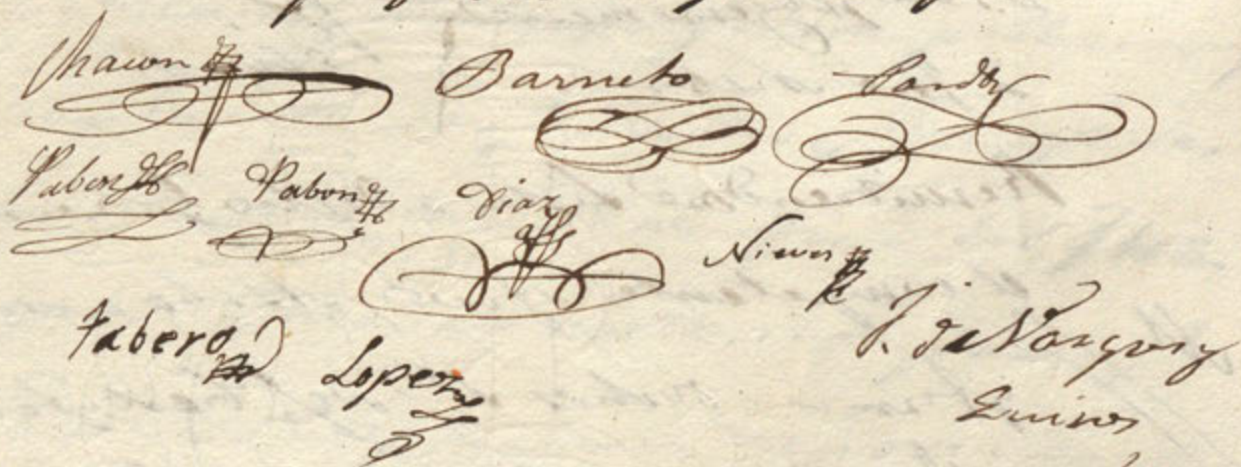 Chacon Barneto Pardo
Pabon Pabon Diaz
Nieves
Tabero Lopez J. de Vargas
Quiros